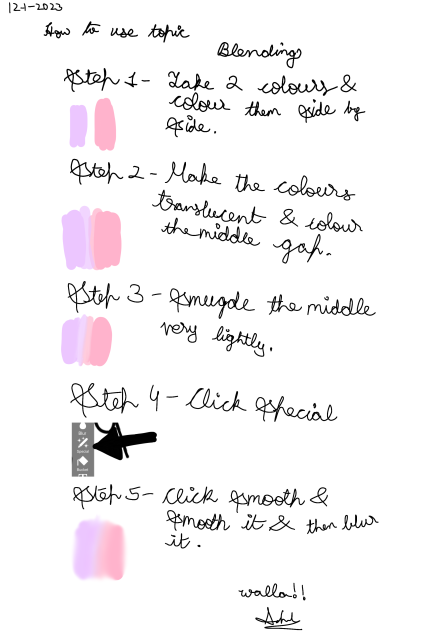 12-1-2023
How to use topic
Blendings
Step 1 - Take 2 colours &
colour them side by
side.
Step 2 - Make the colours
translucent & colour
the middle gap.
Step 3 - Smugde the middle
very lightly.
Step 4 - Click special
Blur
Special
Step 5 - Click smooth &
smooth it & then blur
it.
walla!!